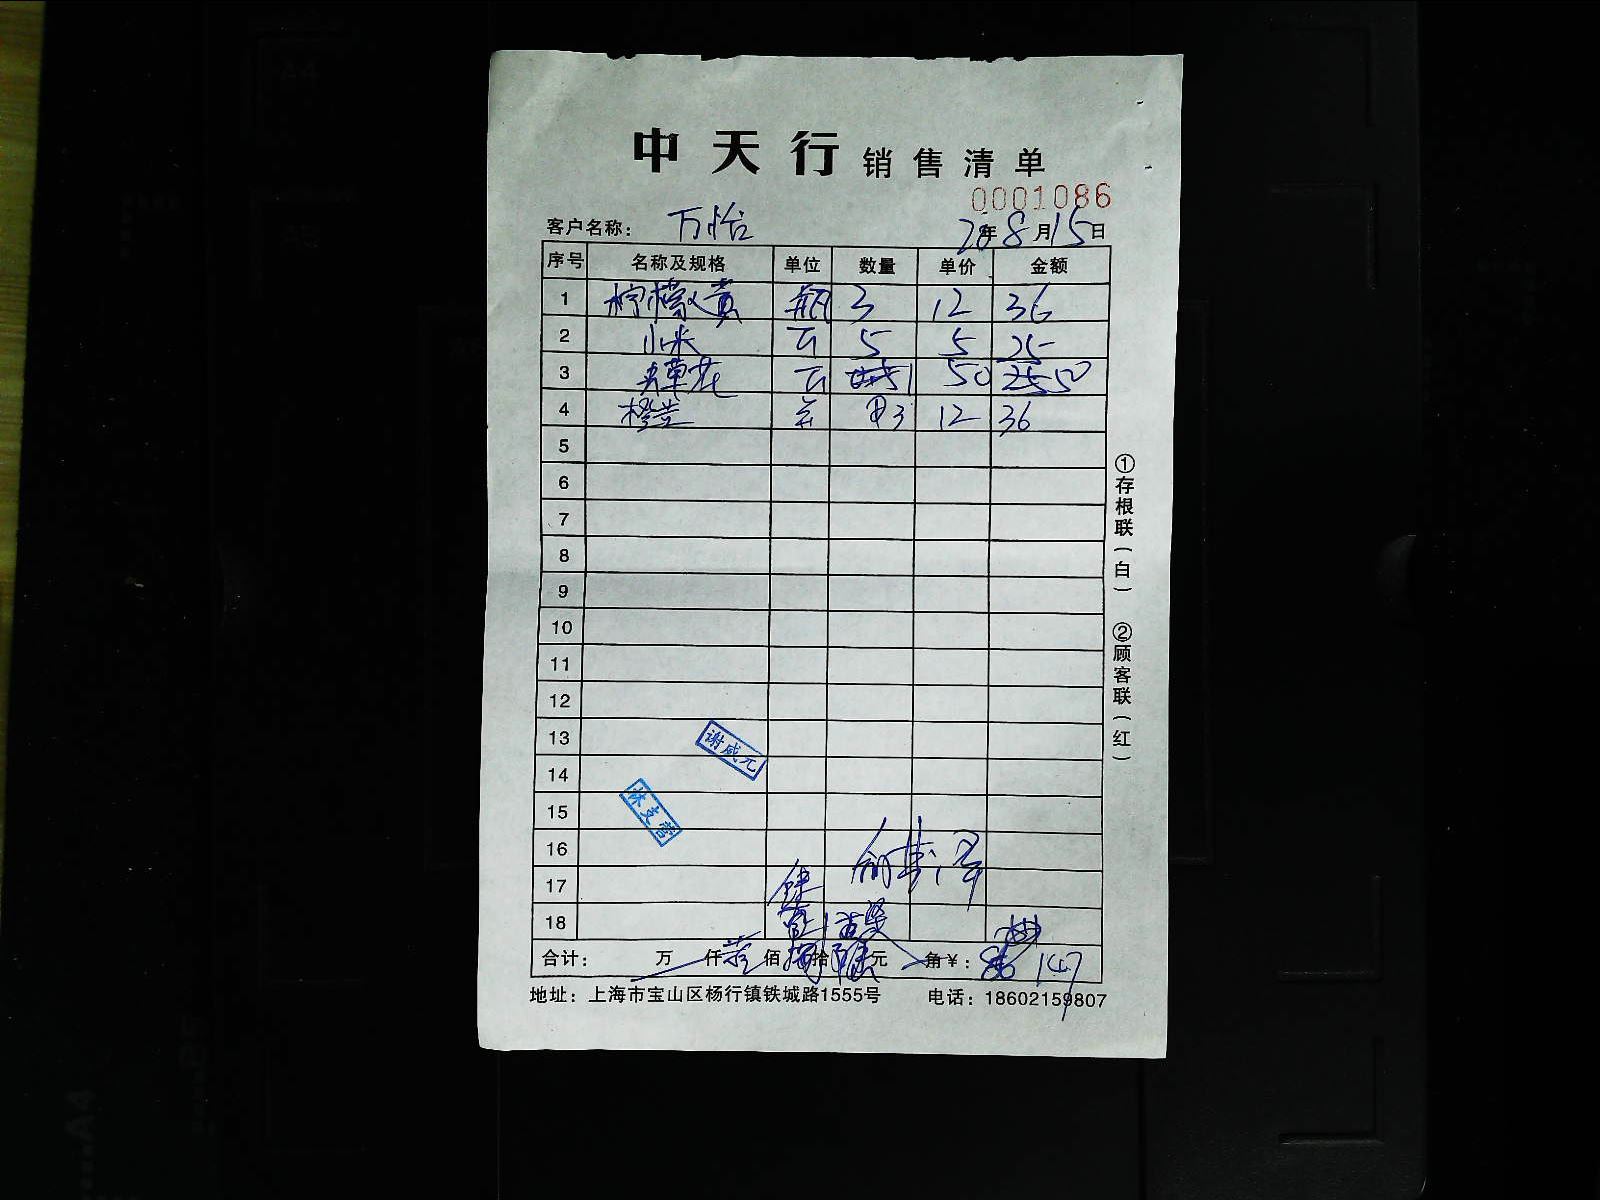 中天行 销售清单
0001086
客户名称： 万怡 20年8月15日
序号 名称及规格 单位 数量 单价 金额
1 柠檬黄 瓶 3 12 36
2 小米 5 5 25
3 虫草花 1 50 50
4 3 12 36
5
6
7
8
9
10
11
12
13
14
15
16
17
18
谢咸元
林支营
合计： 万 仟 佰 拾 元 角 ¥： 147
地址：上海市宝山区杨行镇铁城路1555号 电话：18602159807
①存根联（白） ②顾客联（红）